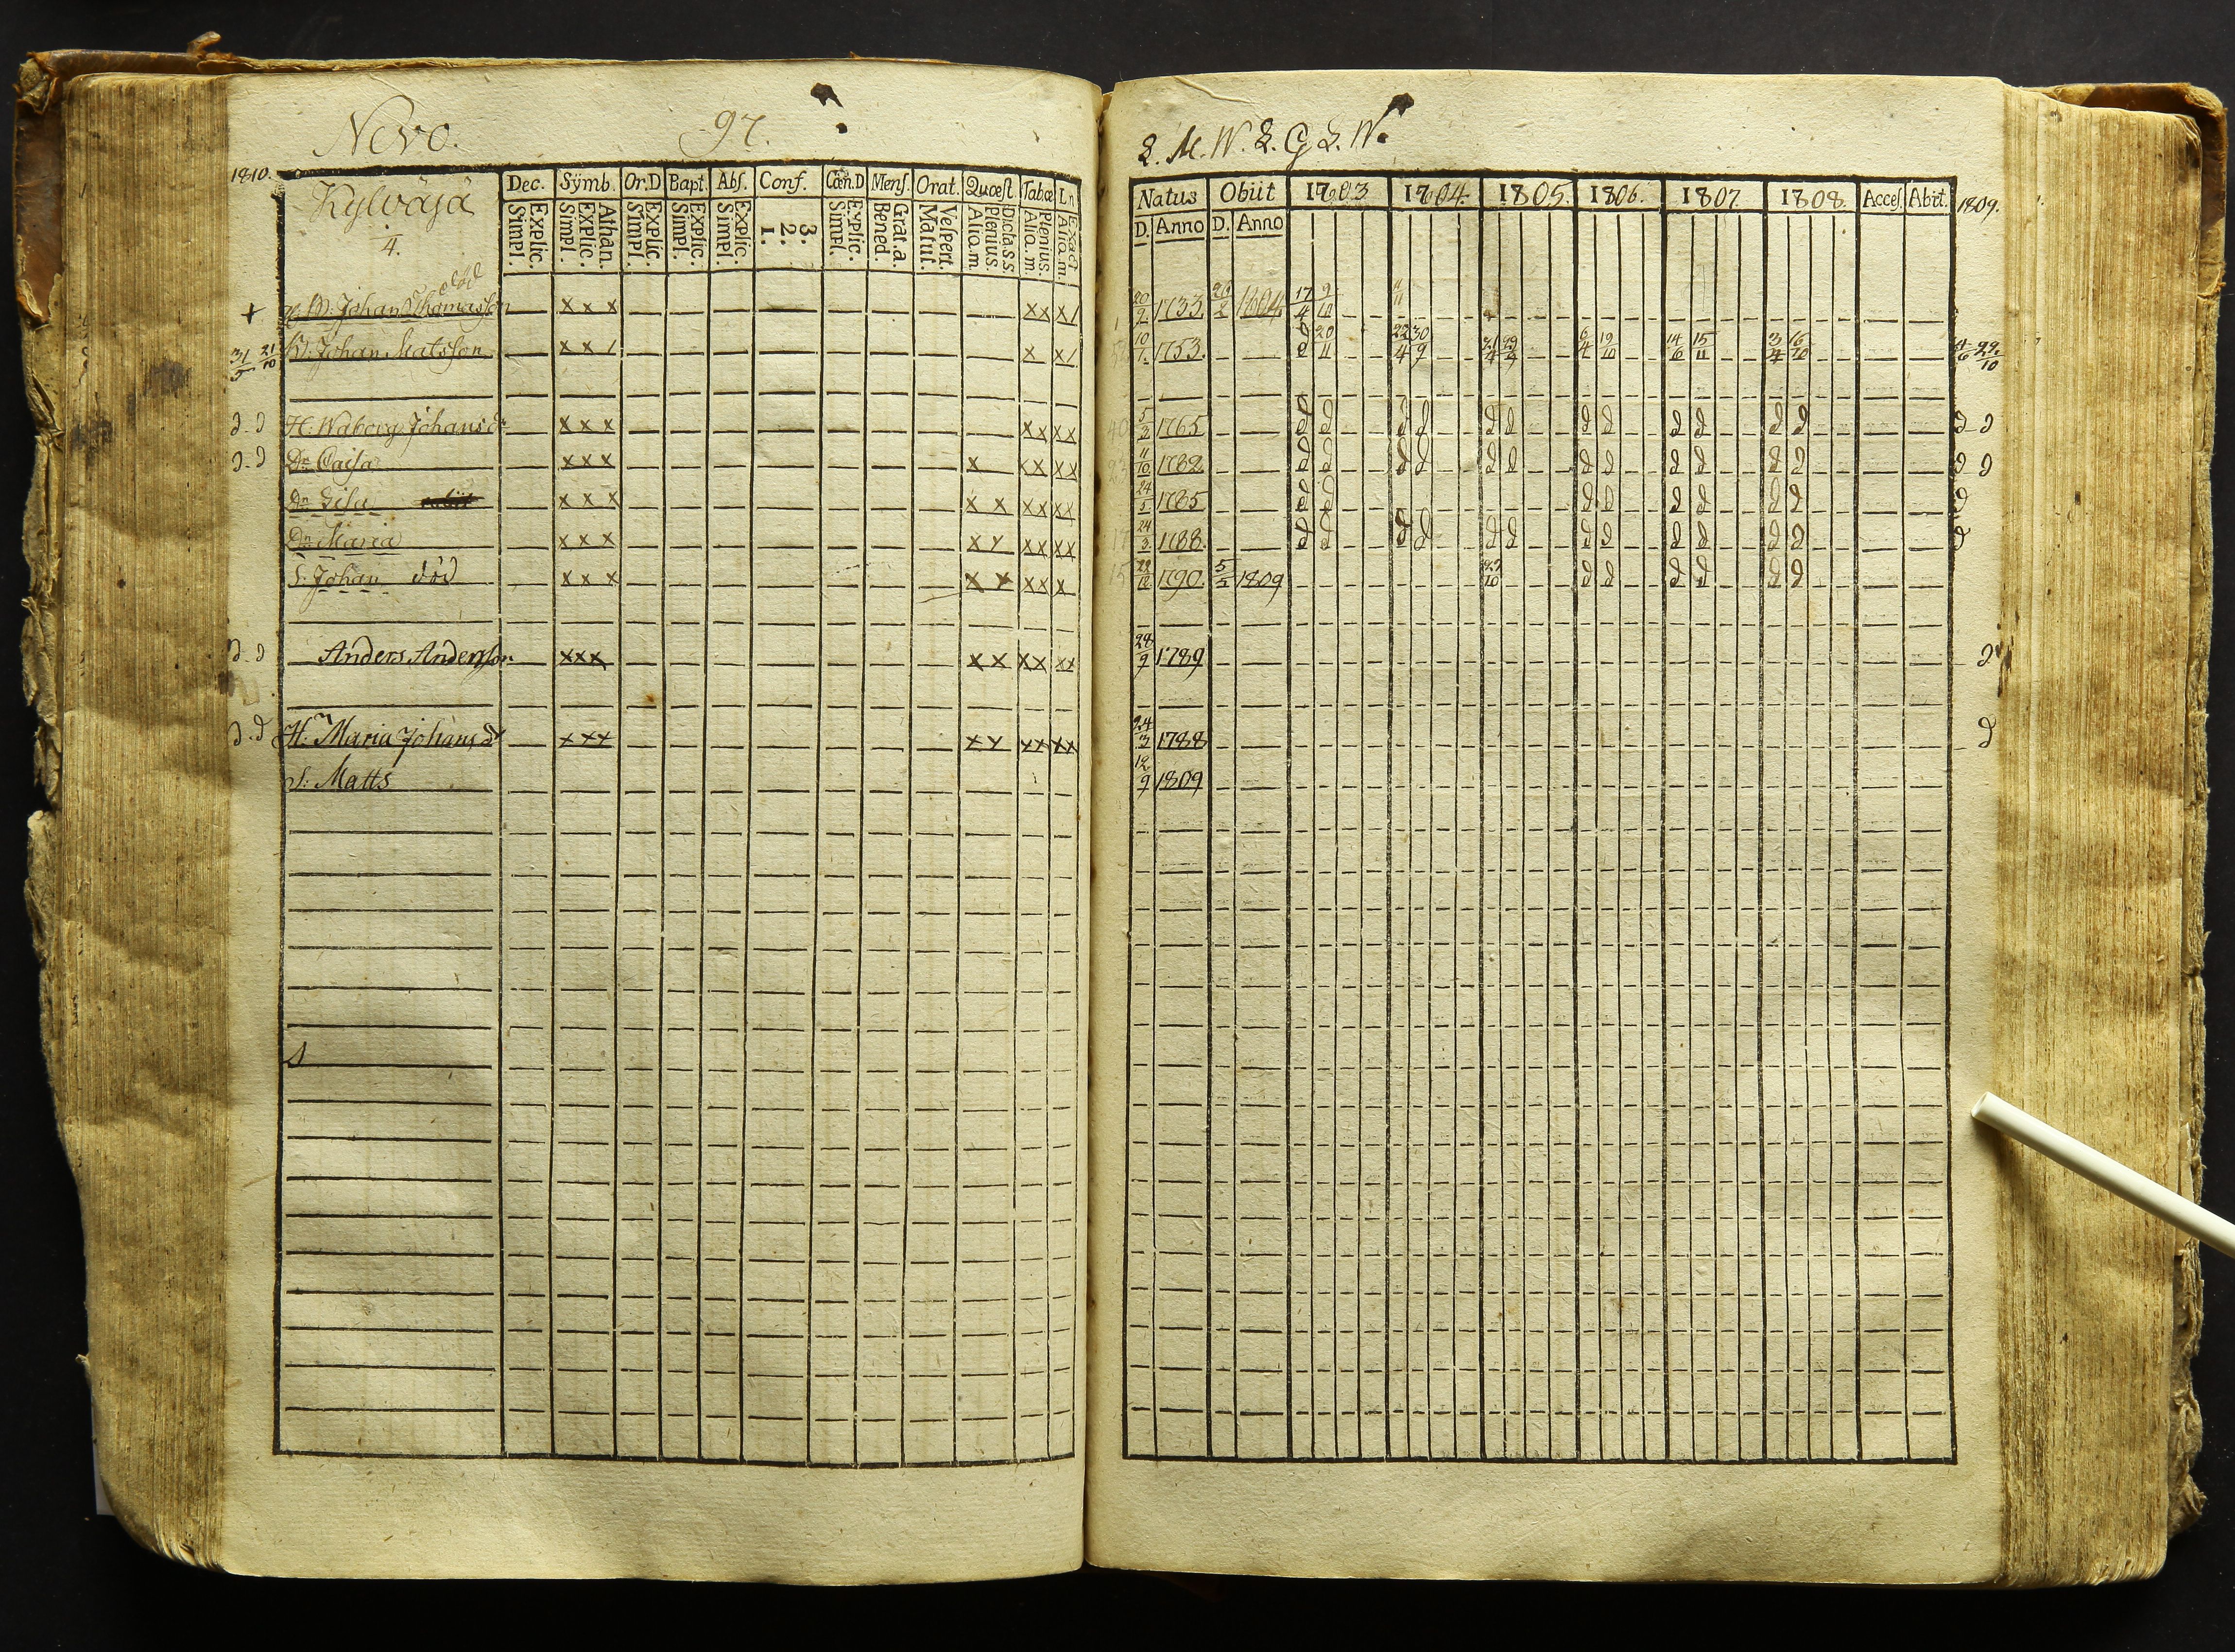 Nevo. 97.
1810.
Kylväjä
4.
Dec. Sÿmb. Or.D Bapt. Abſ. Conf. Cœn.D Menſ. Orat. Quæſt Tabœ Ln.
Explic. Simpl. Athan. Explic. Simpl. Explic. Simpl. Explic. Simpl. Explic. Simpl. 3. 2. 1. Explic. Simpl. Grat.a. Bened. Veſpert. Matut. Dicta.s.s. Plenius. Alio.m. Plenius. Alio.m. Exact Alio.m.
död
+ Johan Thomasſon x x x x x x /
31/5 21/10 Johan Matsſon x x / x x /
d. d H: Waborg Johansdr x x x x x x x
d. d Dr Caisa x x x x x x x x
Dr Lisa x x x x x x x x x
Dr Maria x x x x x x x x x
S: Johan död x x x x x x x x
d. d Anders Andersſon x x x x x x x x x
d. d H: Maria Johansdr x x x x x x x x x
S: Matts
L. M. W. L. G L. W.
Natus Obiit 1803 1804. 1805. 1806. 1807. 1808. Acceſ. Abit. 1809.
D. Anno D. Anno
20/2 1733. 2 1804 17/4 9/10 11/11
10/1. 1753. 20/11 22/4 30/9 21/4 29/9 6/4 19/10 14/6 15/11 3/4 16/10 4/6 22/10
40 5/2 1765 d d d d d d d d d d d d d d
11/10 1782 d d d d d d d d d d d d d d
24/5 1785 d d d d d d d d d
17 24/3 1788. d d d d d d d d d d d d d
15 1790. 5/2 1809 d d d d d d
28/9 1789 d
24/3 1788 d
12/9 1809